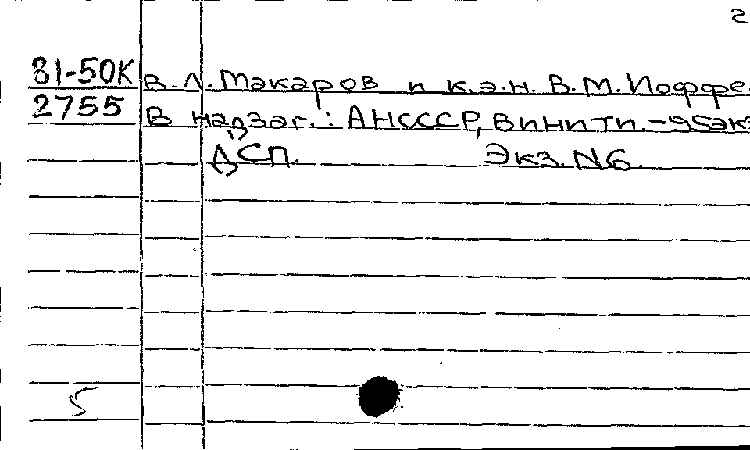 2
81-50К В.Л. Макаров и к.э.н. В.М. Иоффе.
2755 В надзаг.: АН СССР, ВИНИТИ. - 95экз
ДСП. Экз. N6.
5